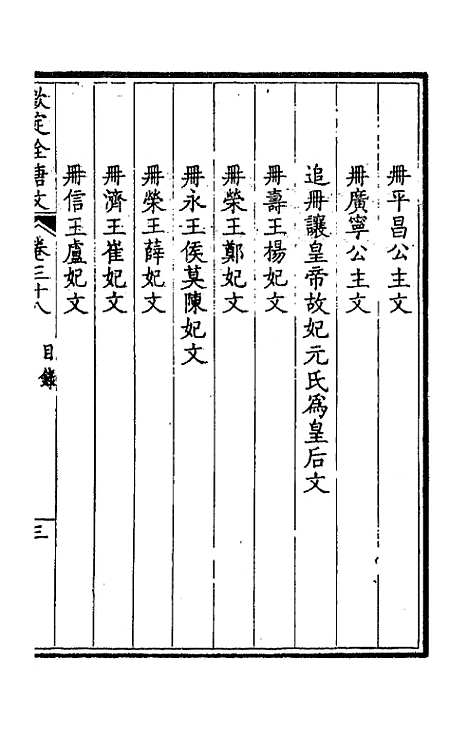 冊平昌公主文
冊廣寧公主文
追冊讓皇帝故妃元氏為皇后文
冊壽王楊妃文
冊榮王鄭妃文
冊永王侯莫陳妃文
冊榮王薛妃文
冊濟王崔妃文
冊信王盧妃文
欽定全唐文 卷三十八 目錄 三